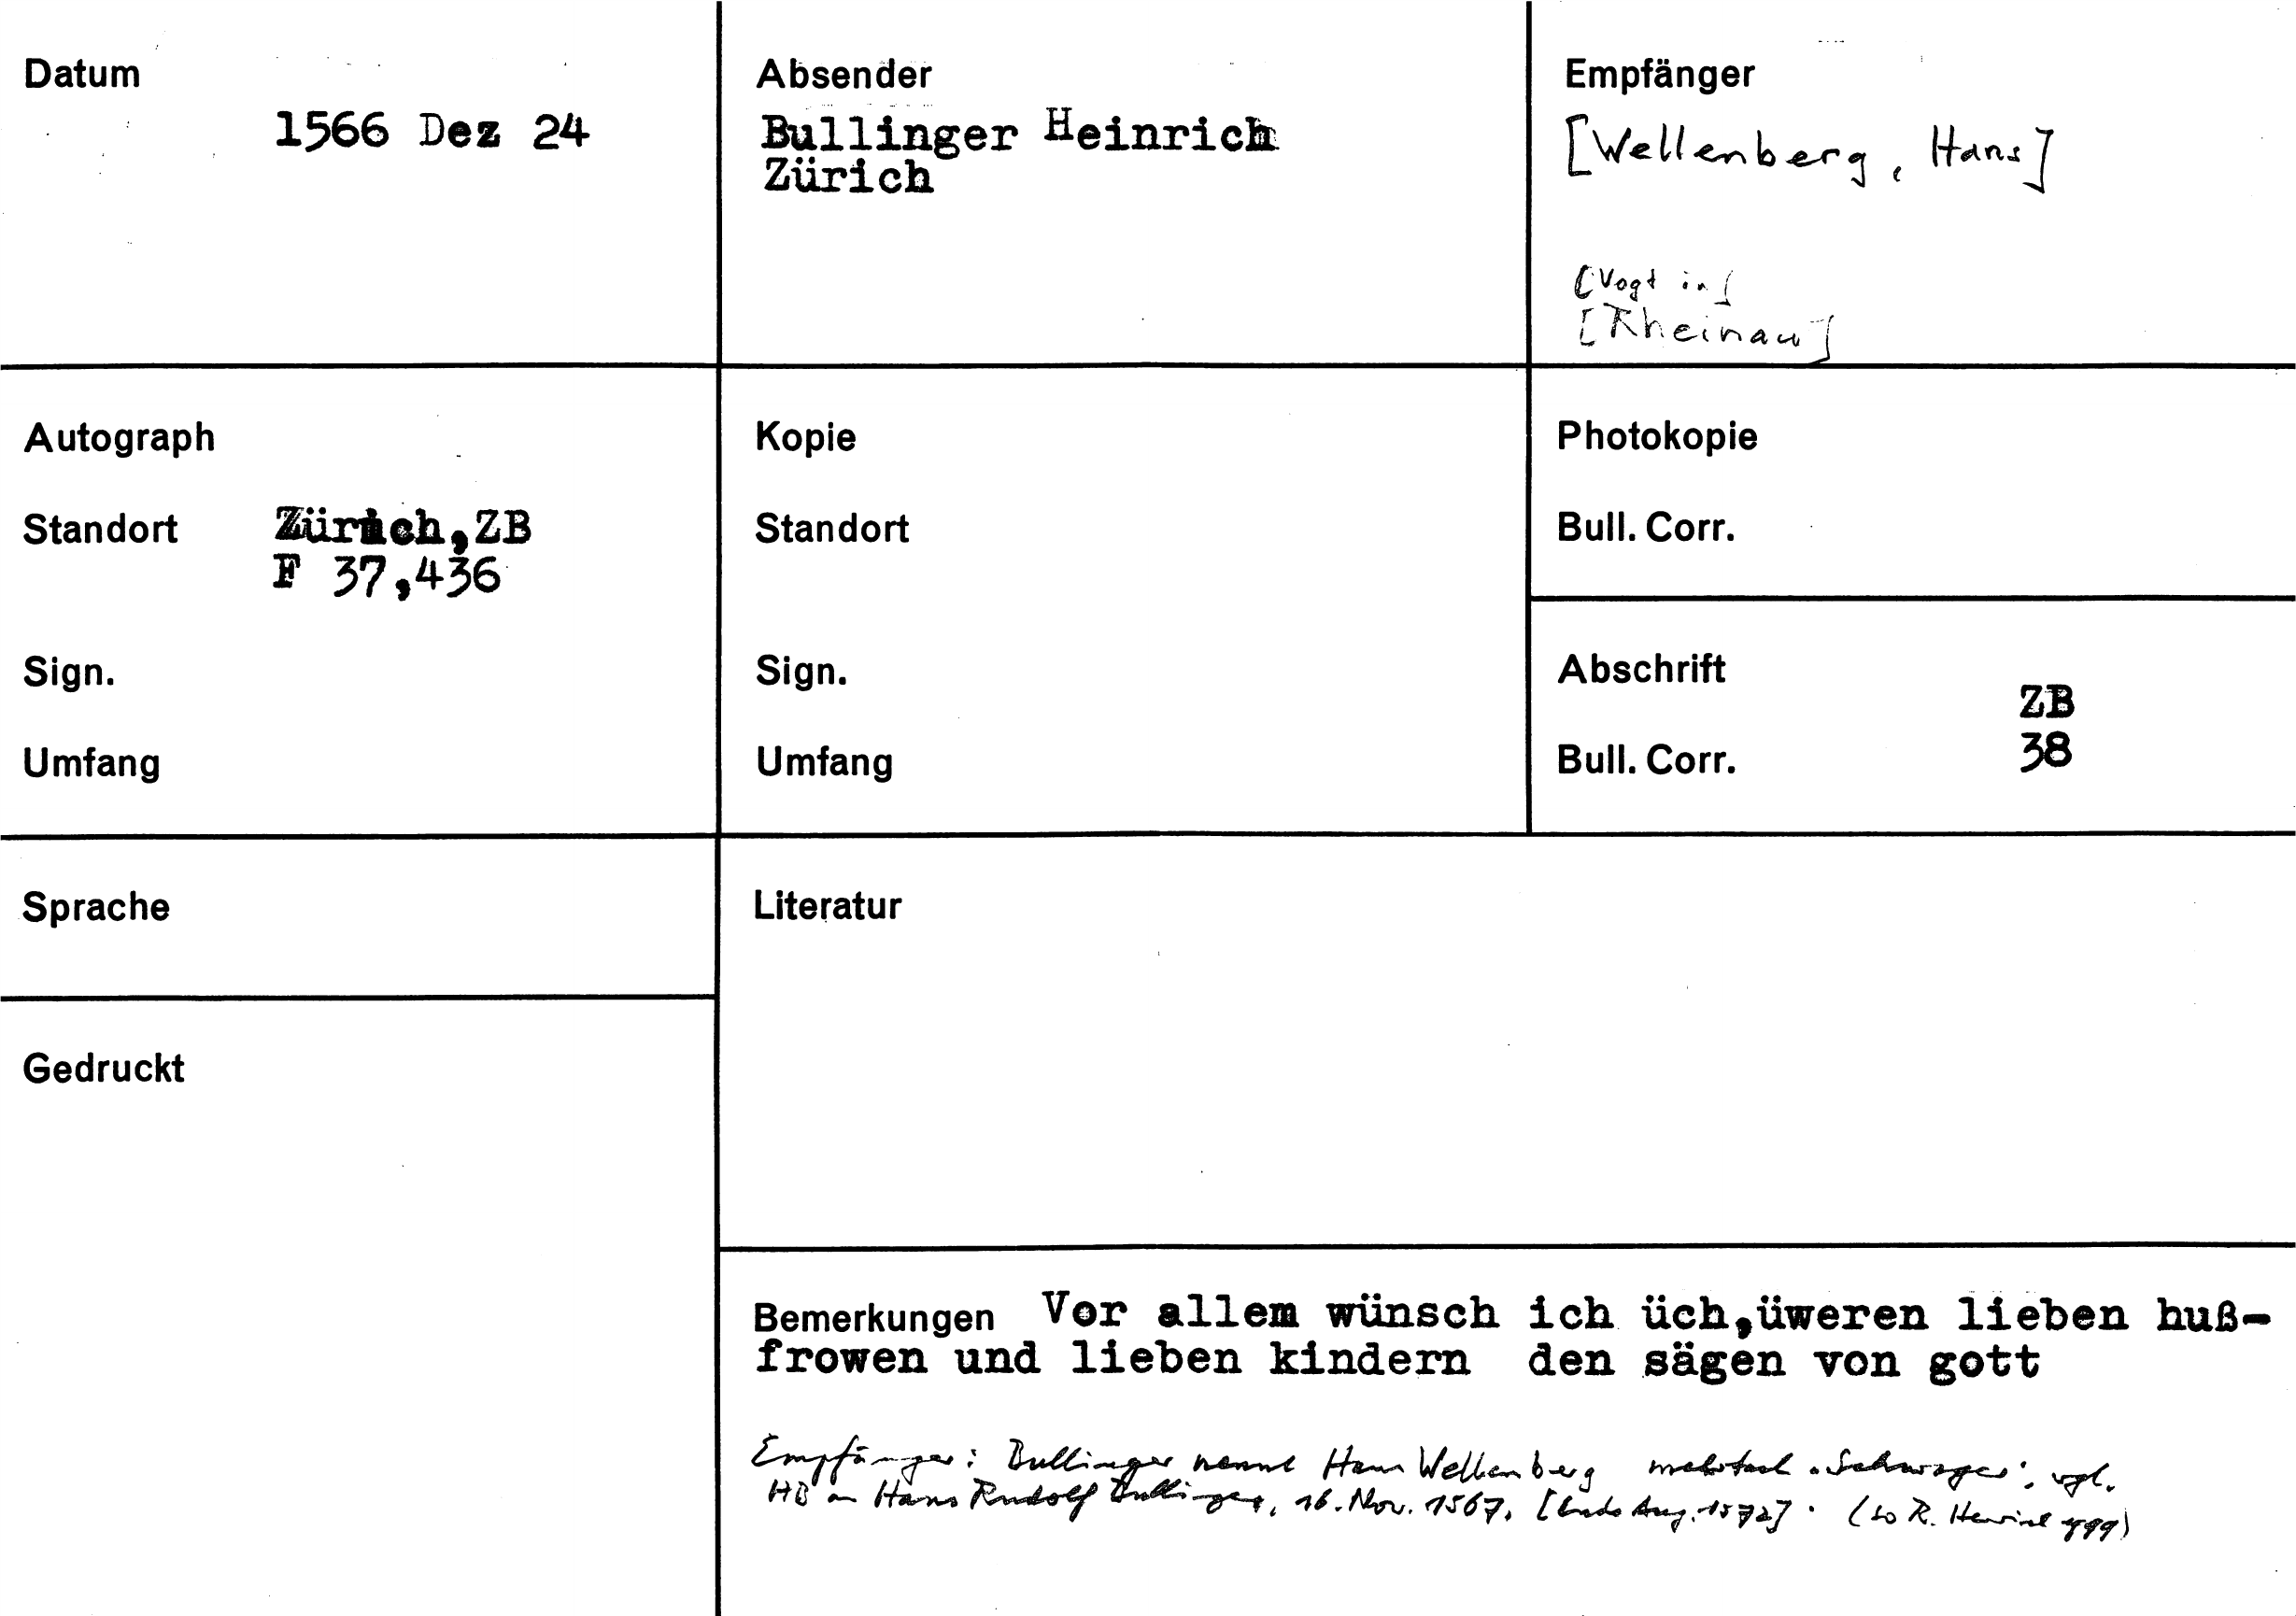 Datum
1566 Dez 24
Absender
Bullinger Heinrich
Zürich
Empfänger
[Wellenberg, Hans]
[Vogt in]
[Rheinau]
Autograph
Standort Zürich,ZB
F 37,436
Sign.
Umfang
Kopie
Standort
Sign.
Umfang
Photokopie
Bull. Corr.
Abschrift
ZB
Bull. Corr. 38
Sprache
Gedruckt
Literatur
Bemerkungen Vor allem wünsch ich üch,üweren lieben huß-
frowen und lieben kindern den sägen von gott
Empfänger: Bullinger nennt Hans Wellenberg mehrfach "Schwager", vgl.
HB an Hans Rudolf Bullinger, 16. Nov. 1567, [Ende Aug. 1572]. (so R. 1999)